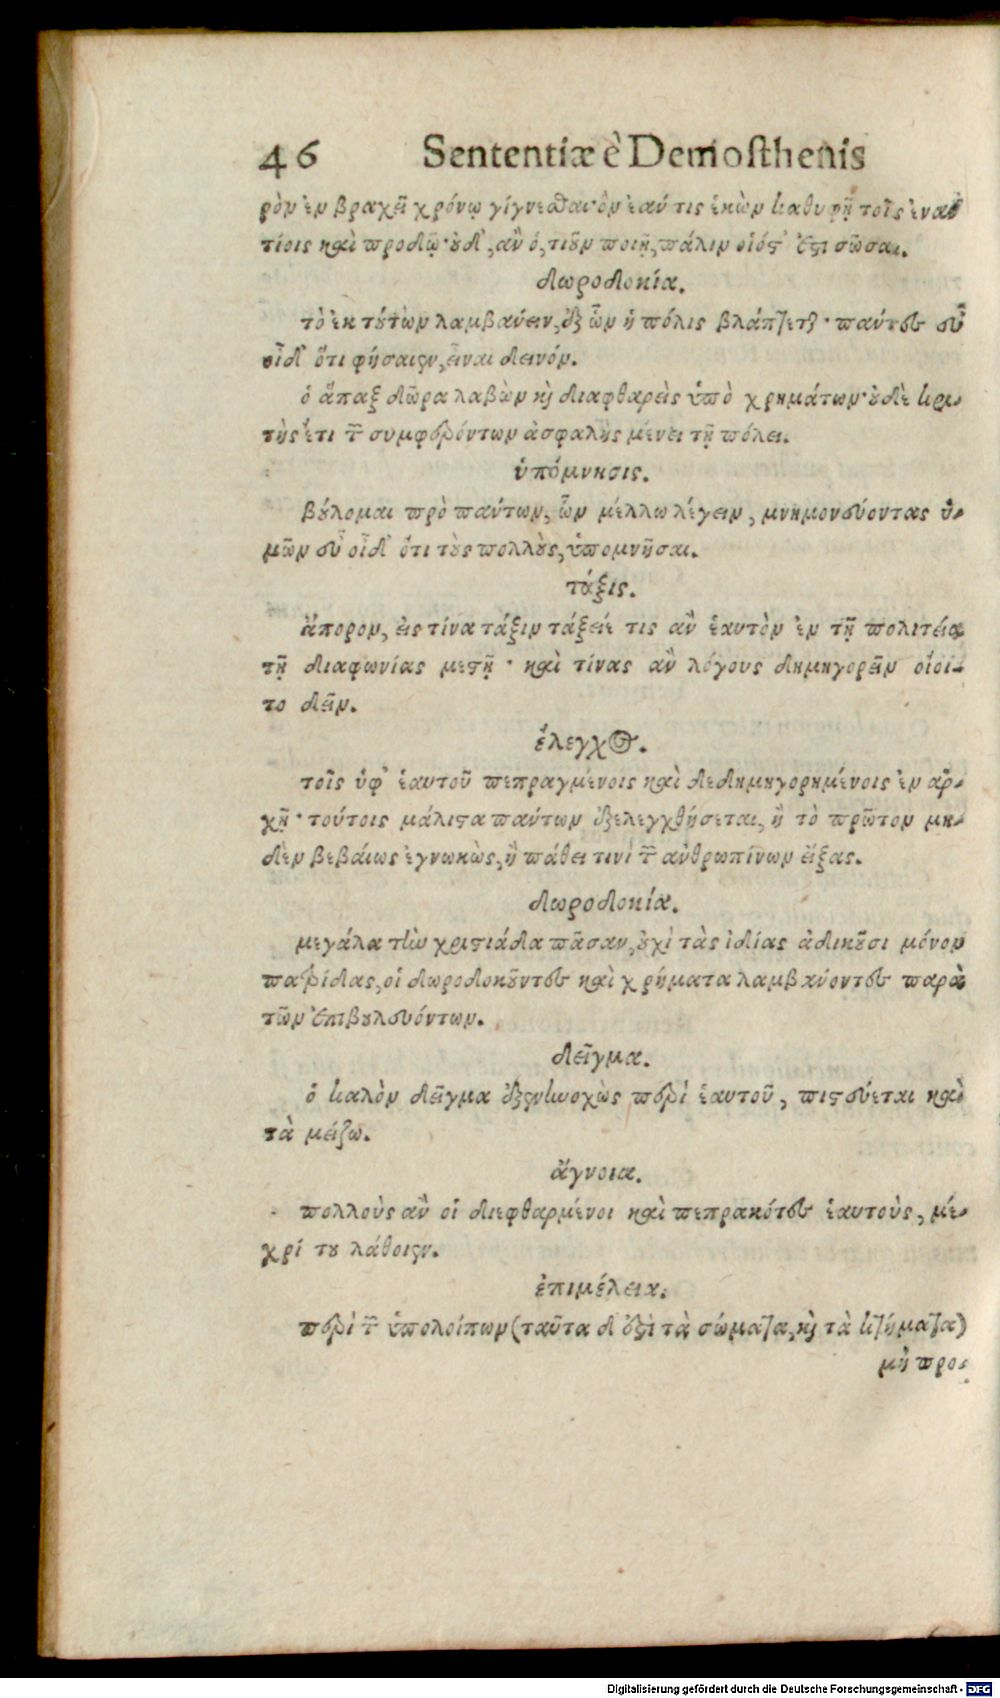 46 Sententiæ è Demosthenis
ρὸν ἐν βραχεῖ χρόνῳ γίγνεσθαι· ὃν ἐάν τις ἑκὼν καθυφῇ τοῖς ἐναν-
τίοις καὶ προδῷ· οὐδ', ἂν ὁ, τιοῦν ποιῇ, πάλιν οἷός τ' ἔσται σῶσαι.
δωροδοκία.
τὸ ἐκ τούτων λαμβάνειν, ἐξ ὧν ἡ πόλις βλάπτεται· πάντες εὖ
οἶδ' ὅτι φήσαιτ' ἂν, εἶναι δεινόν.
ὁ ἅπαξ δῶρα λαβὼν καὶ διαφθαρεὶς ὑπὸ χρημάτων· οὐδὲ κρι-
τὴς ἔτι τῶν συμφερόντων ἀσφαλὴς μένει τῇ πόλει.
ὑπόμνησις.
βούλομαι πρὸ πάντων, ὧν μέλλω λέγειν, μνημονεύοντας ὑ-
μῶν εὖ οἶδ' ὅτι τοὺς πολλοὺς, ὑπομνῆσαι.
τάξις.
ἄπορον, εἰς τίνα τάξιν τάξειέ τις ἂν ἑαυτὸν ἐν τῇ πολιτείᾳ
τῇ διαφωνίας μεστῇ· καὶ τίνας ἂν λόγους δημηγορεῖν οἴοι-
το δεῖν.
ἔλεγχος.
τοῖς ὑφ' ἑαυτοῦ πεπραγμένοις καὶ δεδημηγορημένοις ἐν ἀρ-
χῇ· τούτοις μάλιστα πάντων ἐξελεγχθήσεται, ἢ τὸ πρῶτον μη-
δὲν βεβαίως ἐγνωκὼς, ἢ πάθει τινὶ τῶν ἀνθρωπίνων εἴξας.
δωροδοκία.
μεγάλα τὴν χριστιάδα πᾶσαν, οὐχὶ τὰς ἰδίας ἀδικοῦσι μόνον
πατρίδας, οἱ δωροδοκοῦντες καὶ χρήματα λαμβάνοντες παρὰ
τῶν ἐπιβουλευόντων.
δεῖγμα.
ὁ καλὸν δεῖγμα ἐξενηνοχὼς περὶ ἑαυτοῦ, πιστεύεται καὶ
τὰ μείζω.
ἄγνοια.
πολλοὺς ἂν οἱ διεφθαρμένοι καὶ πεπρακότες ἑαυτοὺς, μέ-
χρί του λάθοιεν.
ἐπιμέλεια.
περὶ τῶν ὑπολοίπων (ταῦτα δ' ἐστὶ τὰ σώματα, καὶ τὰ κτήματα)
μὴ προς
Digitalisierung gefördert durch die Deutsche Forschungsgemeinschaft - DFG